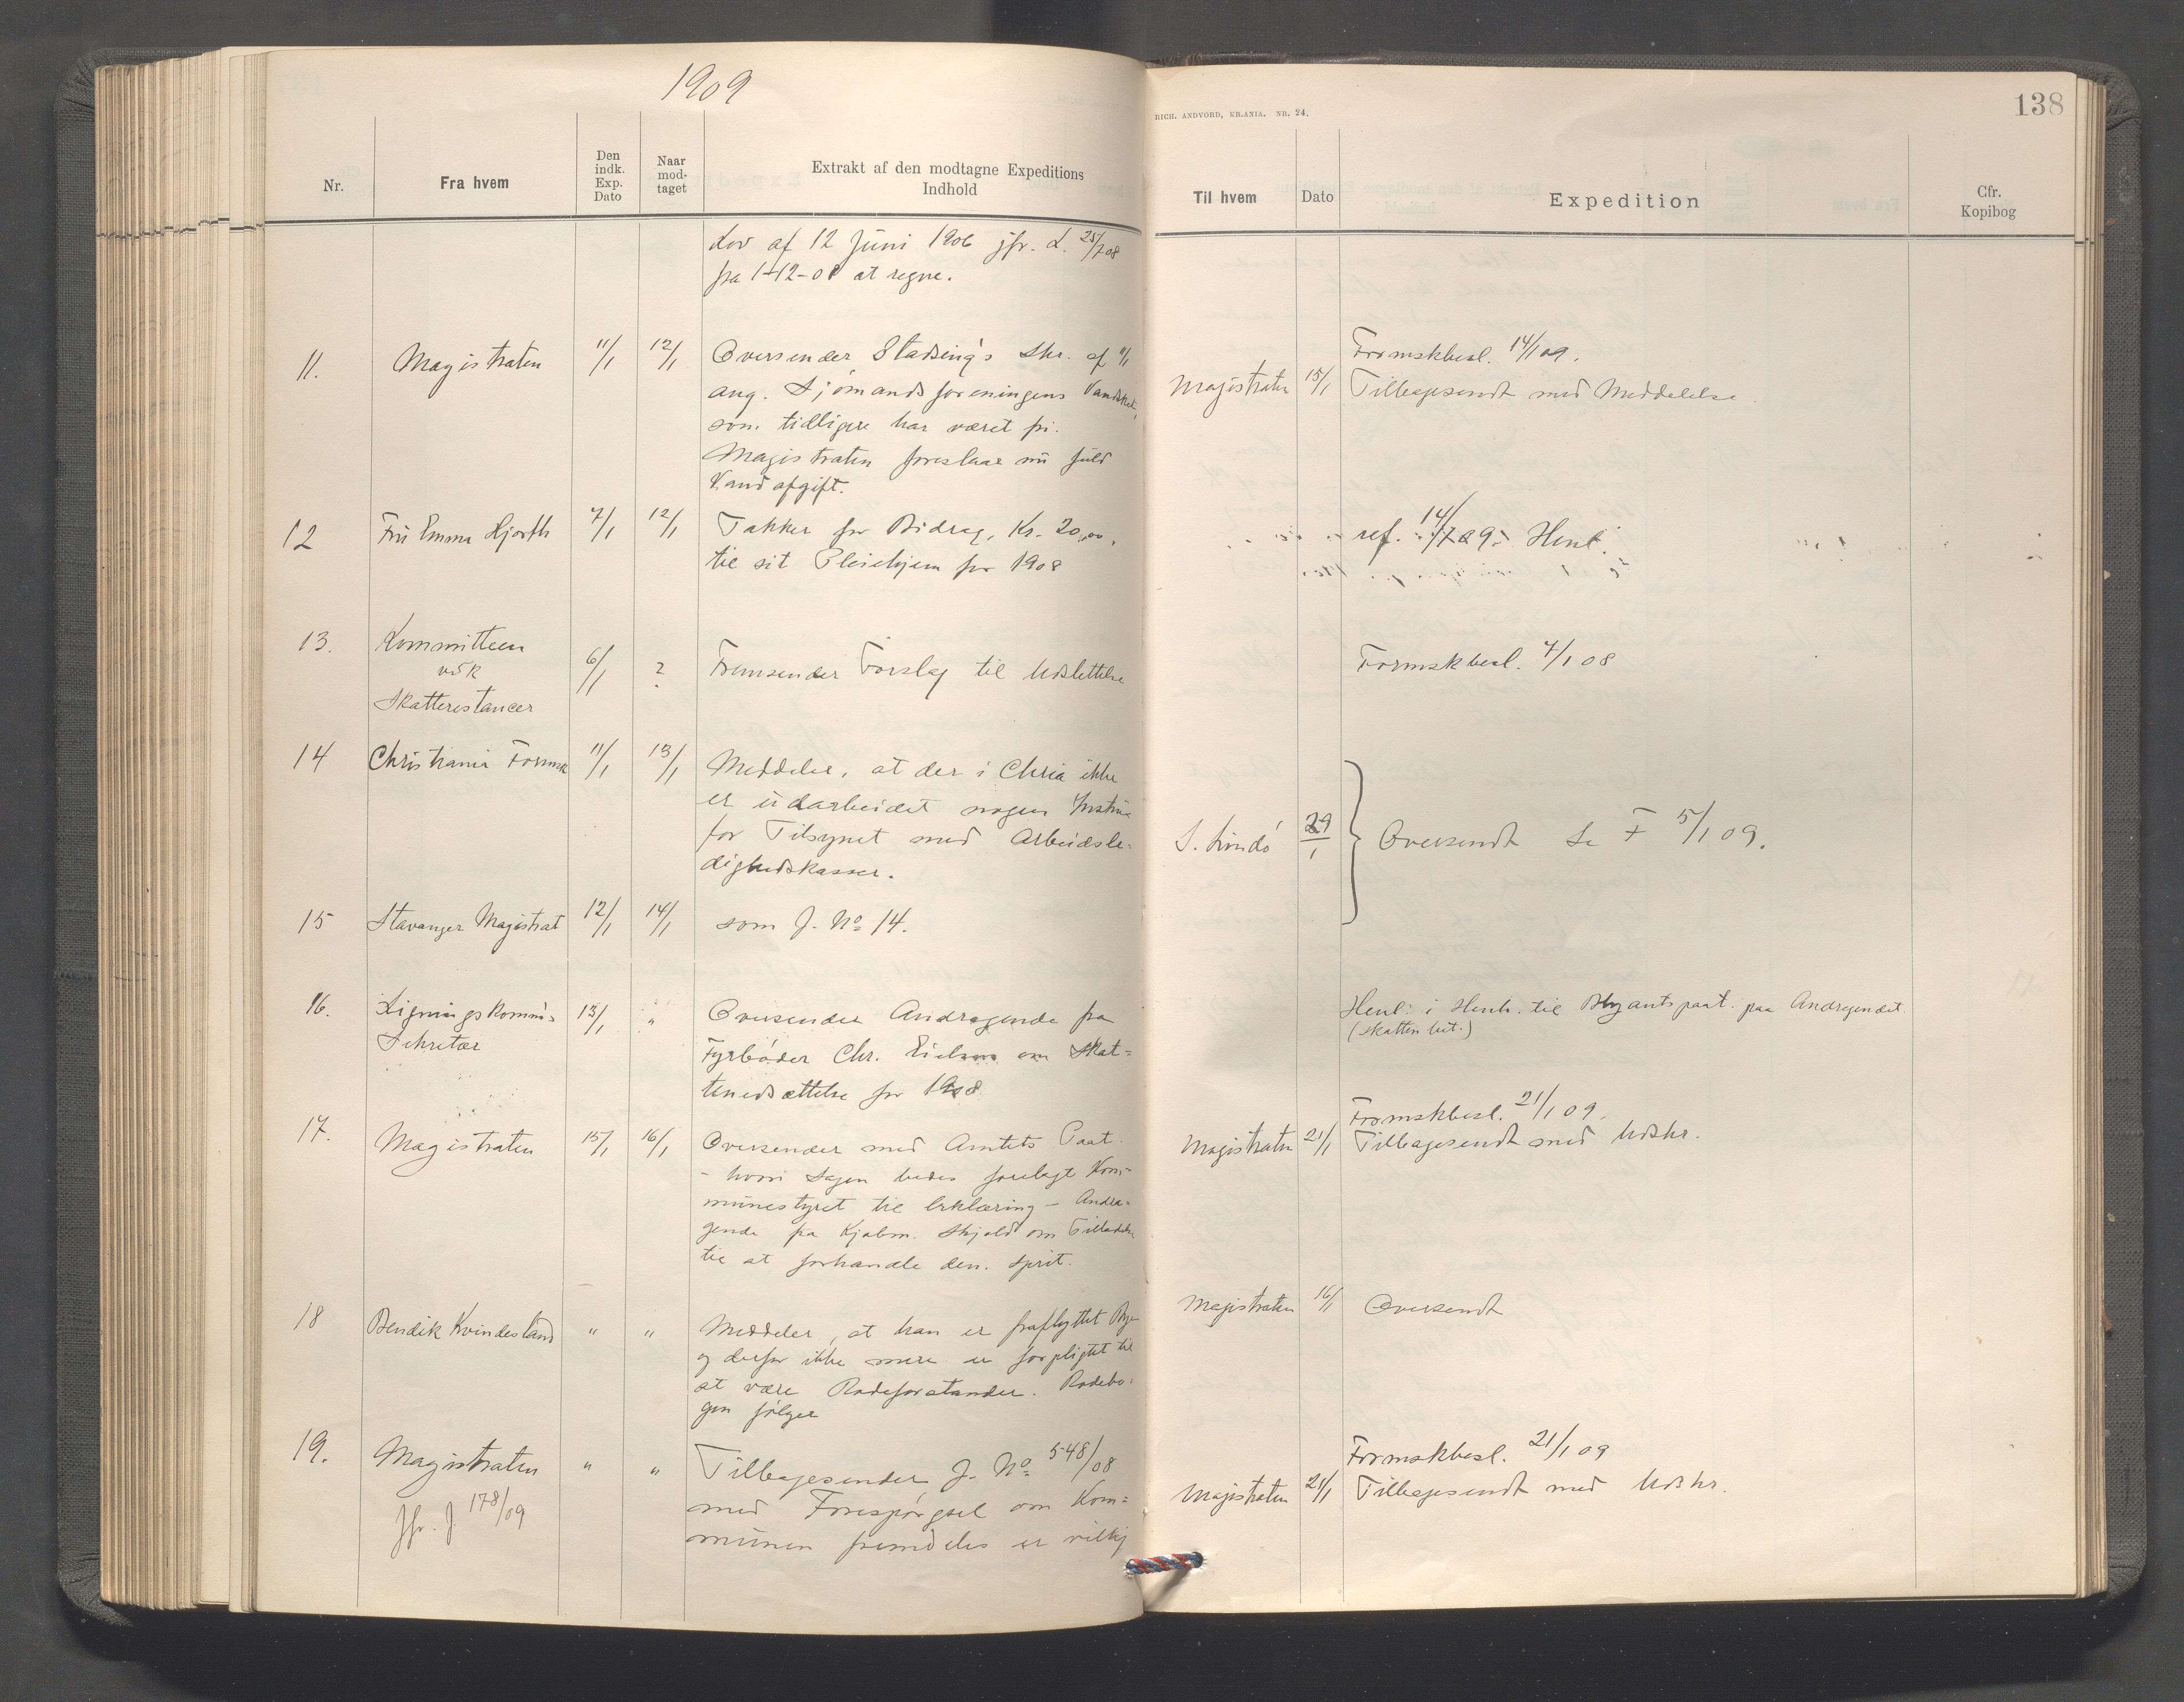 1909
Nr.
Fra hvem
Den
indk.
Exp.
Dato
Naar
mod-
taget
Extrakt af den modtagne Expeditions
Indhold
Lov af 12 Juni 1906 jfr. L. 25/7 08
fra 1-12-08 at regne.
11.
Magistraten
11/1
12/1
Oversender Stadsing's Skr. af 11/1
ang. Sjömandsforeningens Vandskat,
som tidligere har været fri.
Magistraten foreslaar nu fuld
Vandafgift.
12
Fru Emma Hjorth
7/1
12/1
Takker for Bidrag, Kr. 20,00,
til sit Pleiehjem for 1908
13.
Kommitteen
vdk
Skatterestancer
6/1
?
Fremsender Forslag til Udslettelse
14
Christiania Formsk
11/1
13/1
Meddeler, at der i Chria ikke
er udarbeidet nogen Instrux
for Tilsynet med Arbeidsle-
dighedskasser.
15
Stavanger Magistrat
12/1
14/1
som J. No 14.
16.
Ligningskomm's
Sekretær
13/1
"
Oversender Andragende fra
Fyrböder Chr. om Skat-
tenedsættelse for 1908
17.
Magistraten
15/1
16/1
Oversender med Amtets Paat.
- hvori Sagen bedes forelagt Kom-
munestyret til Erklæring - Andra-
gende fra Kjøbm. Skjold om Tilladelse
til at forhandle den. Sprit.
18
Bendik Kvindesland
"
"
Meddeler, at han er fraflyttet Byen
og derfor ikke mere er forpligtet til
at være Rodeforstander. Rodebo-
gen følger
19.
Magistraten
jfr. J 178/09
"
"
Tilbagesender J. No 548/08
med Forespørgsel om Kom-
munen fremdeles er villig
RICH. ANDVORD, KR.ANIA. NR. 24.
138
Til hvem
Dato
Expedition
Cfr.
Kopibog
Formskbesl. 14/1 09.
Magistraten
15/1
Tilbagesendt med Meddelelse.
ref. 14/1 09 - Henl.
Formskbesl. 7/1 08
S. Lindö
29/1
Oversendt Se F 5/1 09.
Henl. i Henh. til paat. paa Andragendet.
(Skatten bet.)
Formskbesl. 21/1 09.
Magistraten
21/1
Tilbagesendt med Udskr.
Magistraten
16/1
Oversendt
Formskbesl. 21/1 09
Magistraten
21/1
Tilbagesendt med Udskr.